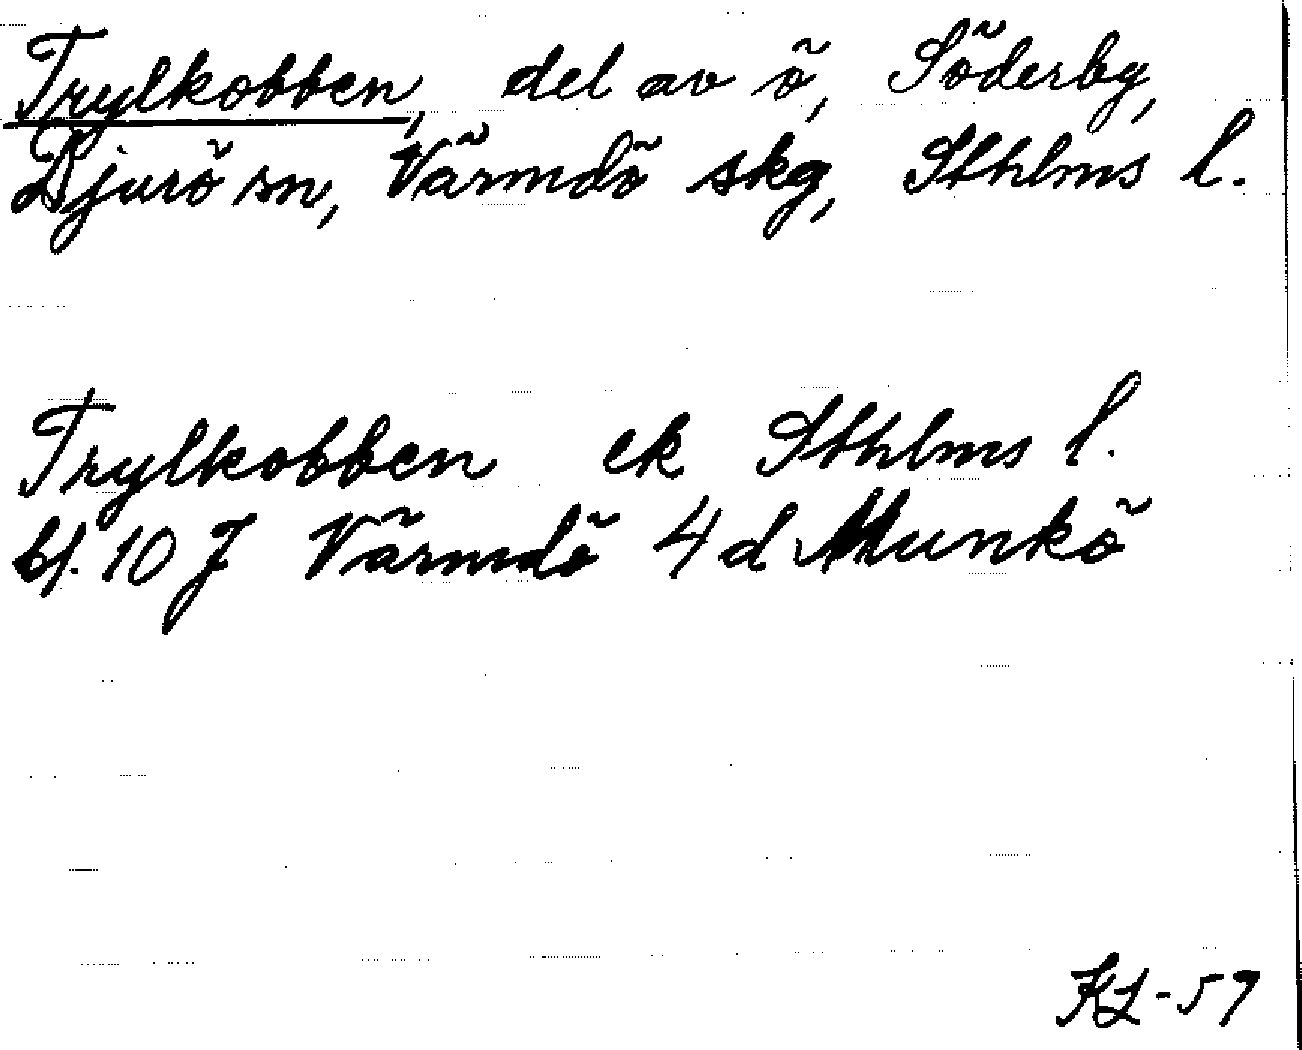 Trylkobben, del av ö, Söderby,
Djurö sn, Värmdö skg, Sthlms l.
Trylkobben ek Sthlms l.
bl. 10 J Värmdö 4 d Munkö
KL-57